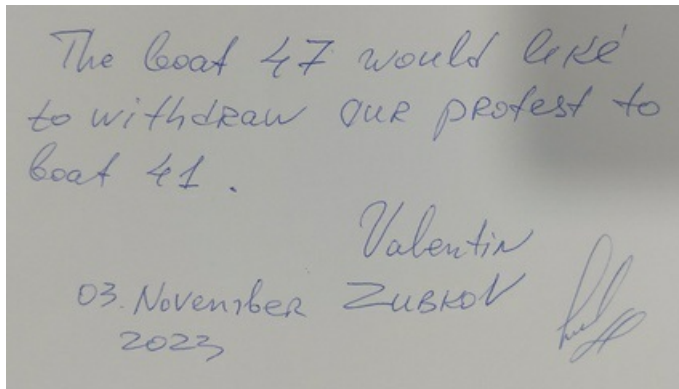 The boat 47 would like
to withdraw our protest to
boat 41.
Valentin
03. November ZUBKOV
2023